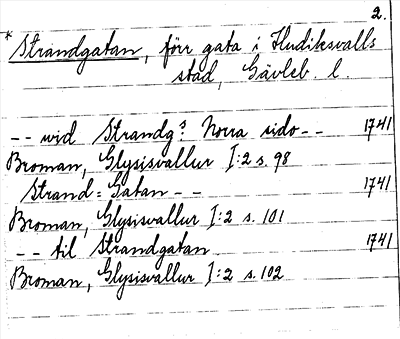 2.
* Strandgatan, förr gata i Hudiksvalls
stad, Gävleb. l.
-- wid Strandg? Norra sido -- 1741
Broman, Glysisvallur I:2 s. 98
Strand=Gatan -- 1741
Broman, Glysisvallur I:2 s. 101
-- til Strandgatan 1741
Broman, Glysisvallur I:2 s. 102